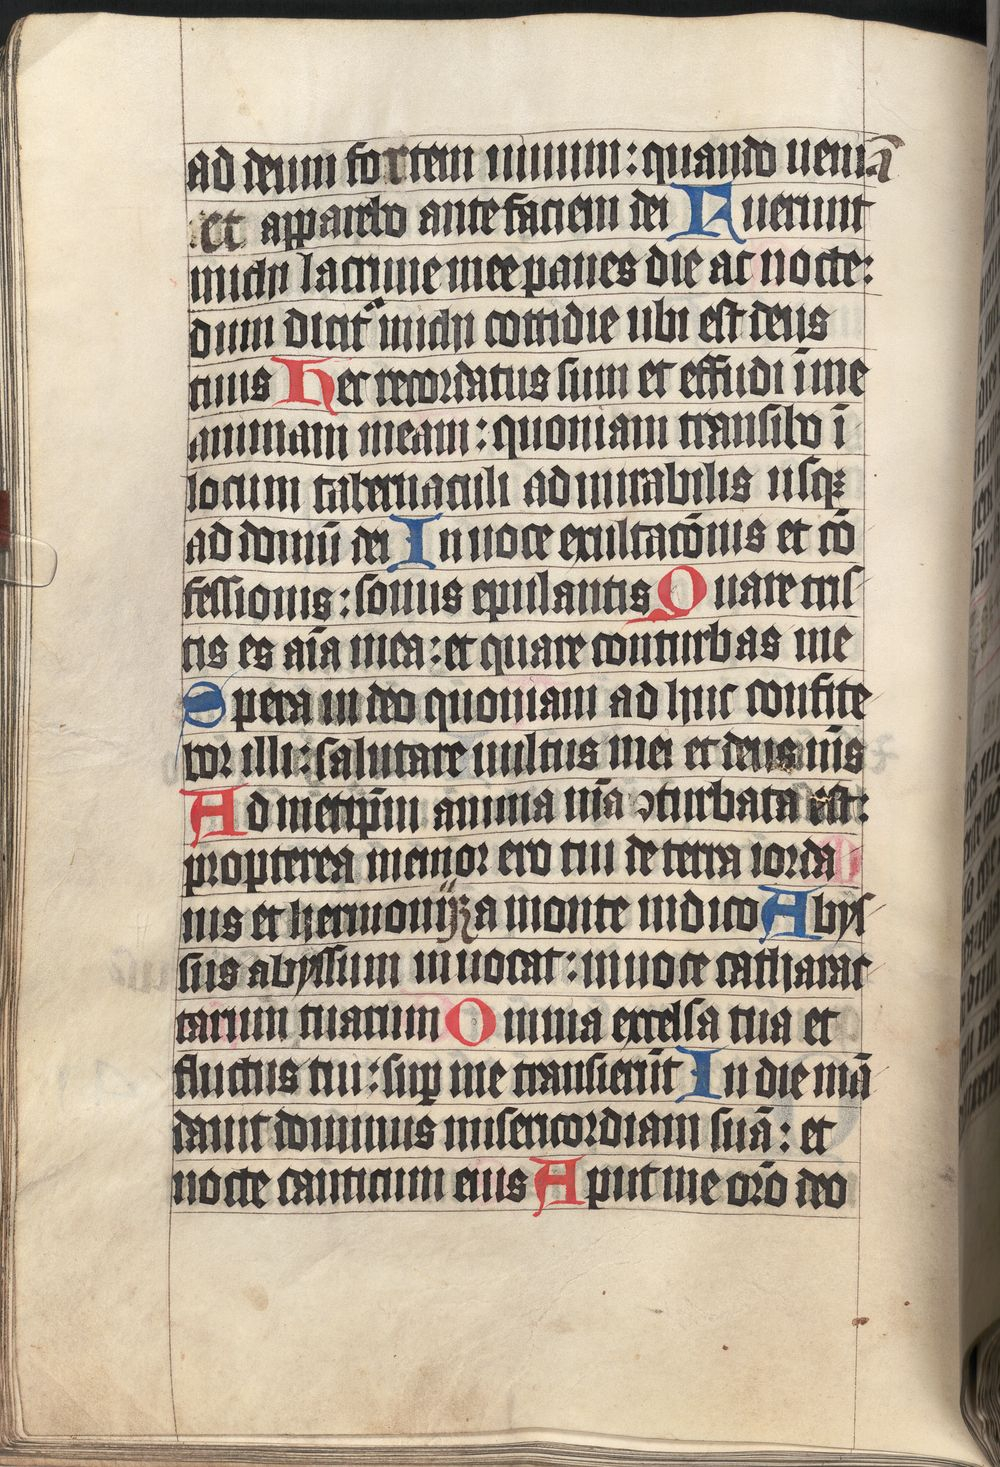 ad deum fortem uiuum: quando ueniā
et apparebo ante faciem dei Fuerunt
michi lacrime mee panes die ac nocte:
dum dicit᷑ michi cottidie ubi est deus
tuus Hec recordatus sum et effudi ī me
animam meam: quoniam transibo ī
locum tabernaculi admirabilis usqꝫ
ad domū dei In uoce exultacōnis et cō
fessionis: sonus epulantis Quare tris
tis es aīa mea: et quare conturbas me
Spera in deo quoniam ad huc confite
bor illi: salutare uultus mei et deus m̄s
Ad meip̄m anima m̄a ꝯturbata est:
propterea memor ero tui de terra iorda
nis et hermoniī a monte modico Abys
sus abyssum inuocat: in uoce catharac
tarum tuarum Omnia excelsa tua et
fluctus tui: suꝑ me transierūt In die mā
dauit dominus misericordiam suā: et
nocte canticum eius Aput me or̄o deo